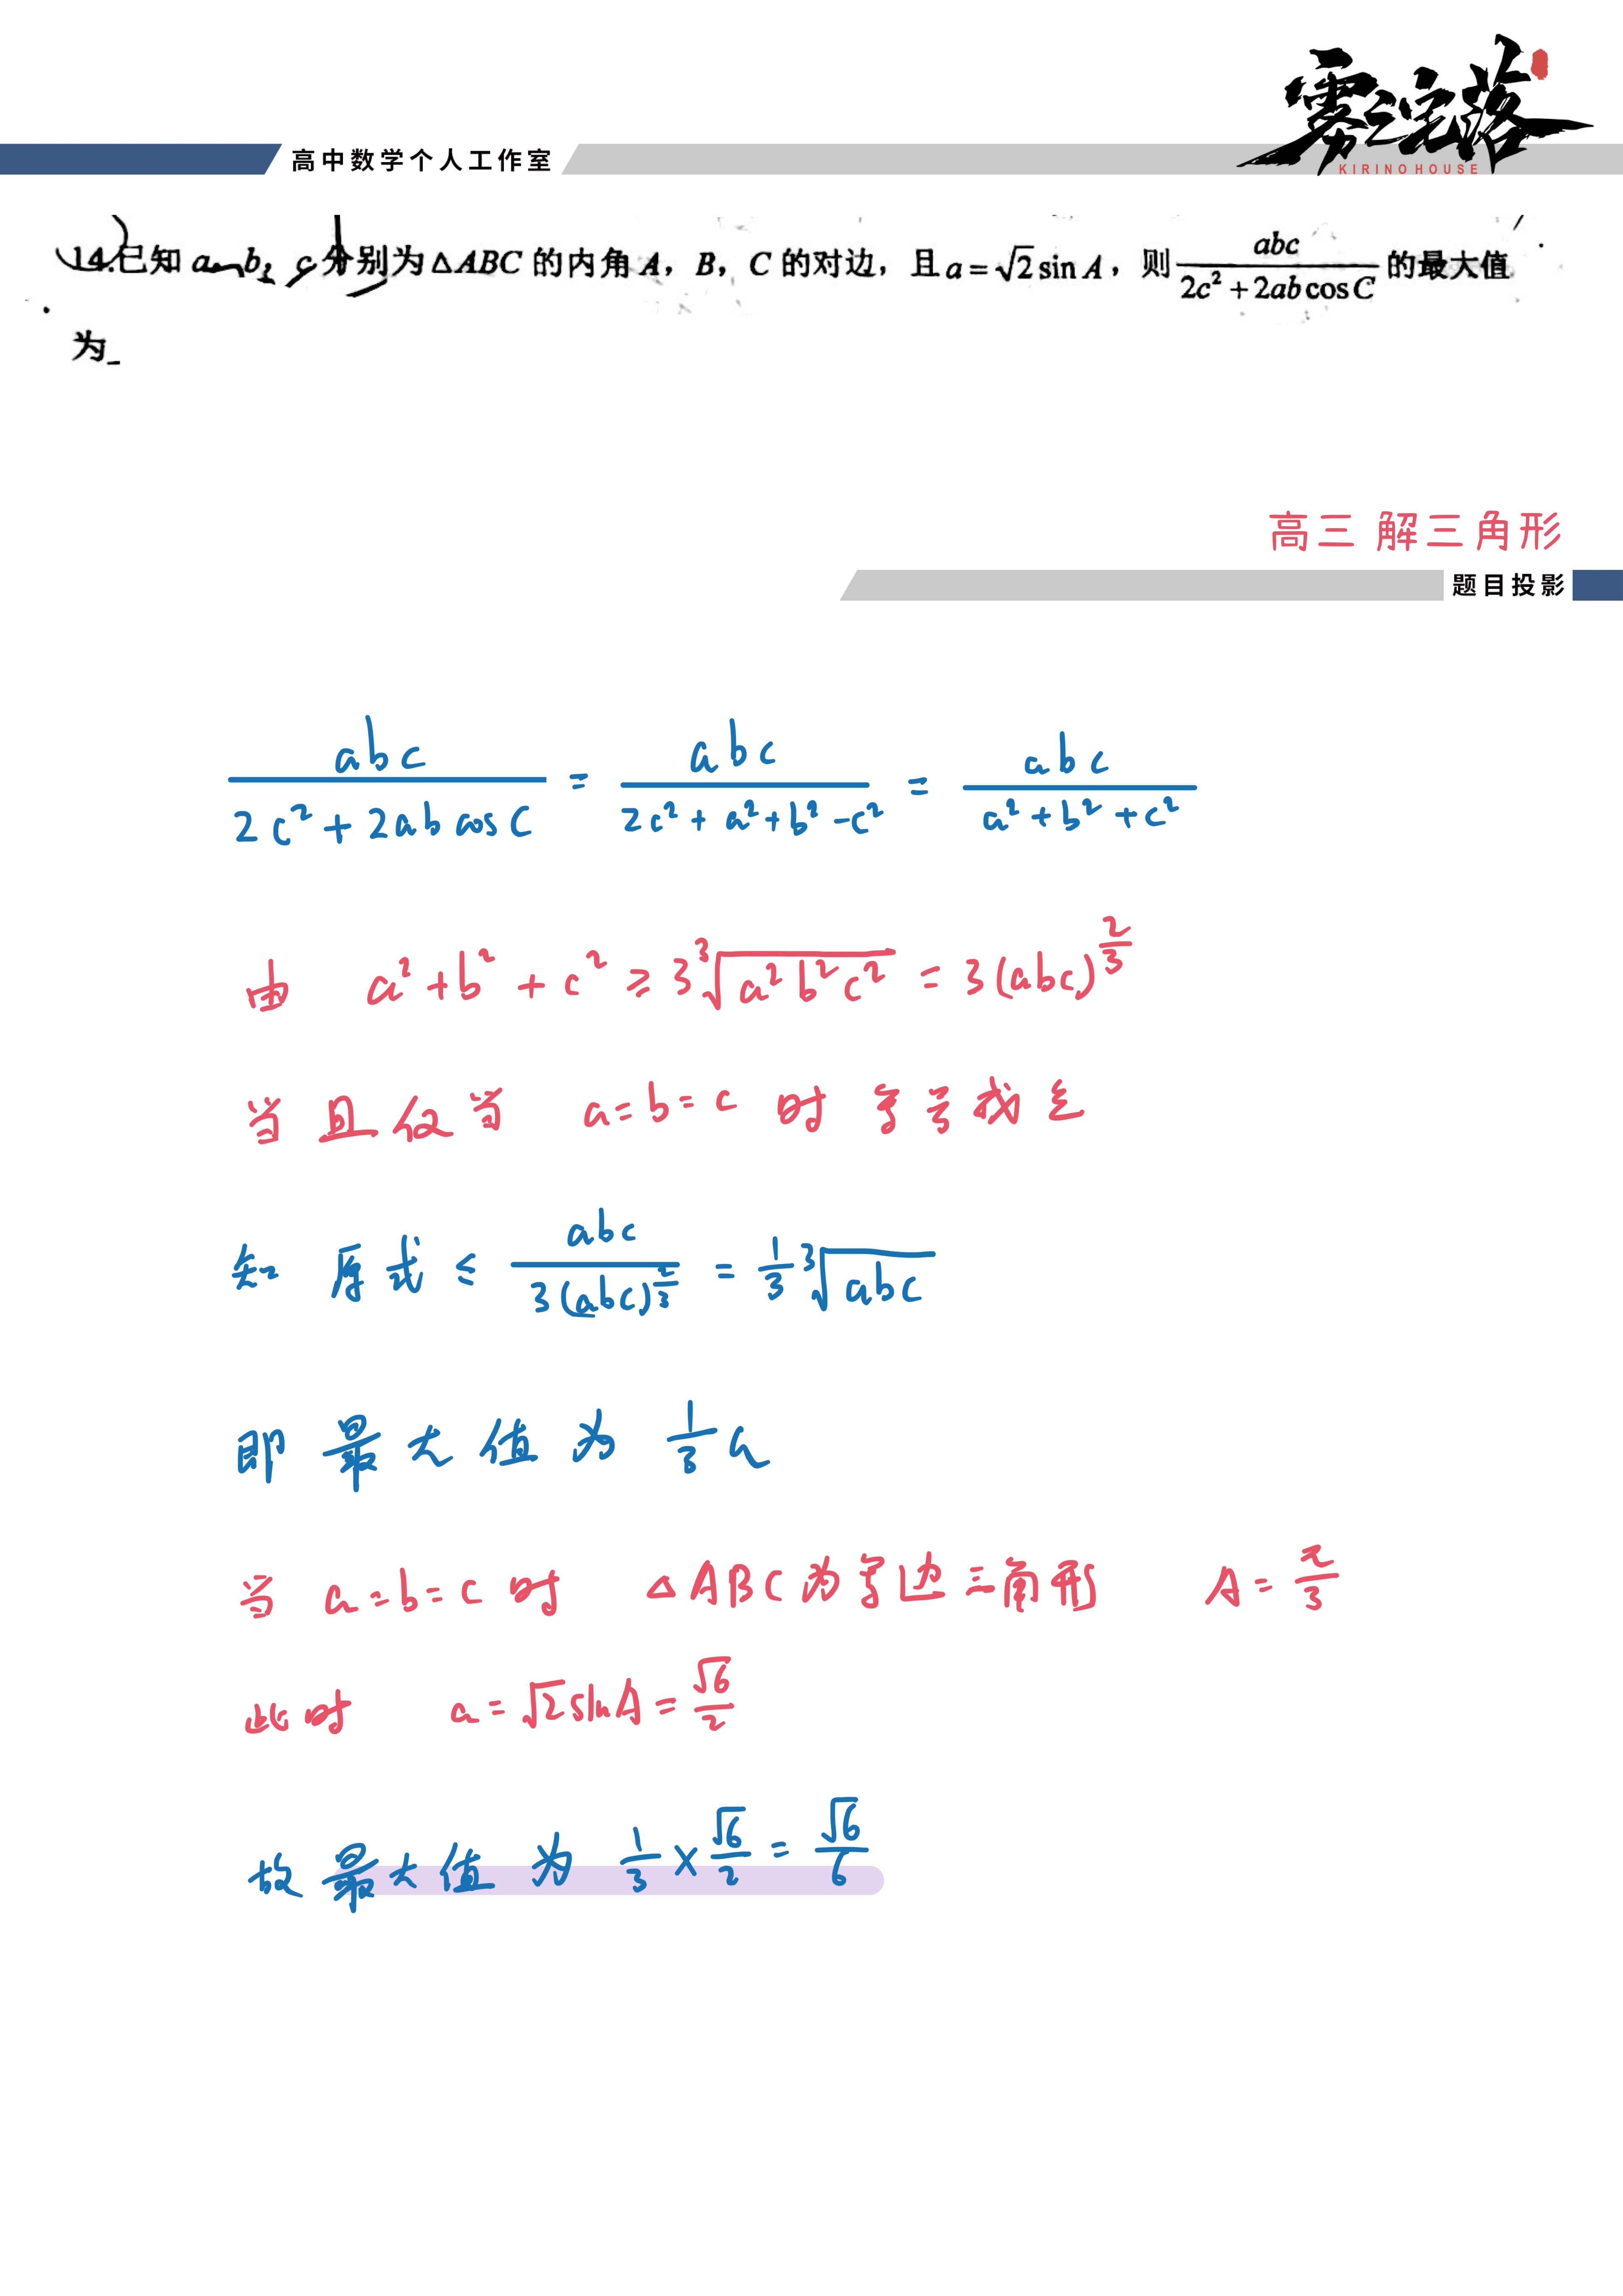 雾之宅落
KIRINO HOUSE
高中数学个人工作室
14.已知 a、b,c 分别为△ABC 的内角 A,B,C 的对边,且 a=√2 sin A,则 abc/(2c²+2ab cos C) 的最大值
为_
高三 解三角形
题目投影
abc/(2c²+2ab cos C) = abc/(2c²+a²+b²-c²) = abc/(a²+b²+c²)
由 a²+b²+c² ≥ 3∛(a²b²c²) = 3(abc)^(2/3)
当且仅当 a=b=c 时等号成立
知 原式 ≤ abc/(3(abc)^(2/3)) = 1/3 ∛(abc)
即最大值为 1/3 a
当 a=b=c 时 △ABC为等边三角形 A=π/3
此时 a=√2 sin A=√6/2
故最大值为 1/3×√6/2=√6/6